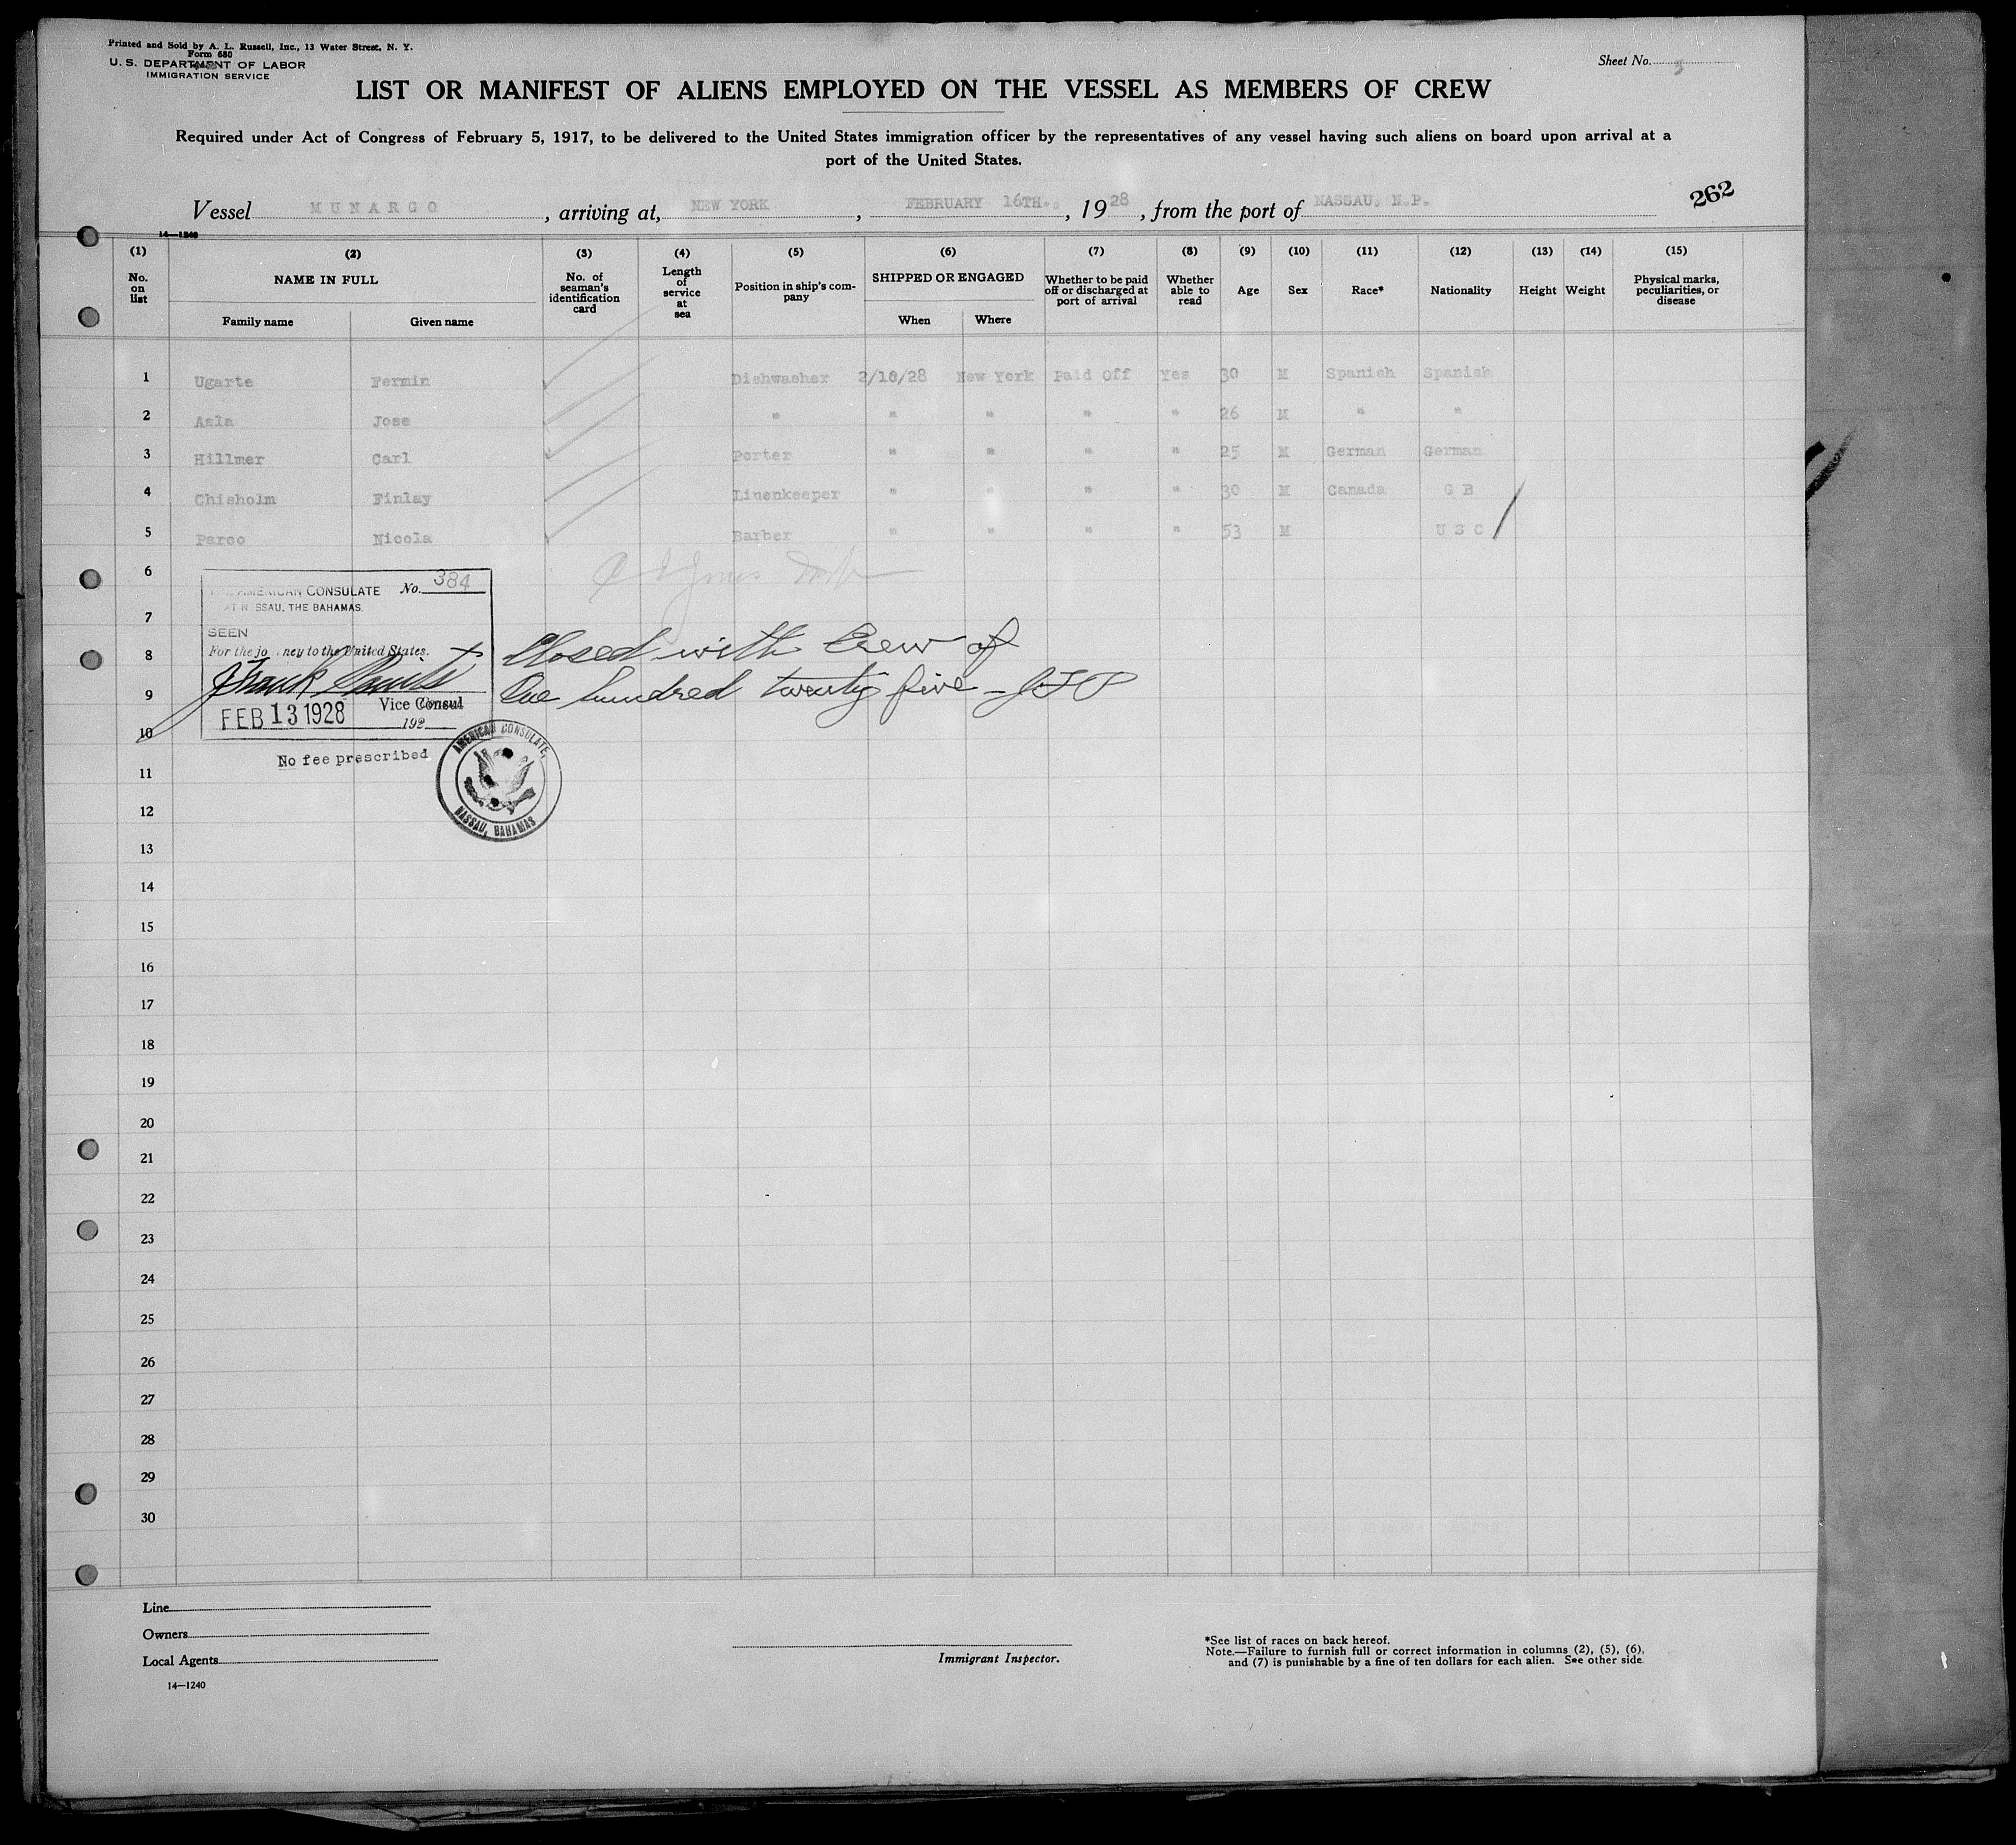 Printed and Sold by A. L. Russell, Inc., 13 Water Street, N. Y.
Form 680
U. S. DEPARTMENT OF LABOR
IMMIGRATION SERVICE
Sheet No. 3
LIST OR MANIFEST OF ALIENS EMPLOYED ON THE VESSEL AS MEMBERS OF CREW
Required under Act of Congress of February 5, 1917, to be delivered to the United States immigration officer by the representatives of any vessel having such aliens on board upon arrival at a
port of the United States.
262
Vessel MUNARGO, arriving at, NEW YORK, FEBRUARY 16TH., 1928, from the port of NASSAU, N.P.
14—1240
(1) (2) (3) (4) (5) (6) (7) (8) (9) (10) (11) (12) (13) (14) (15)
No. on list
NAME IN FULL
Family name Given name
No. of seaman's identification card
Length of service at sea
Position in ship's company
SHIPPED OR ENGAGED
When Where
Whether to be paid off or discharged at port of arrival
Whether able to read
Age Sex Race* Nationality Height Weight
Physical marks, peculiarities, or disease
1 Ugarte Fermin Dishwasher 2/10/28 New York Paid Off Yes 30 M Spanish Spanish
2 Asla Jose " " " " " 26 M " "
3 Hillmer Carl Porter " " " " 25 M German German
4 Chisholm Finlay Linenkeeper " " " " 30 M Canada G B
5 Paroo Nicola Barber " " " " 53 M U S C
6
7
8
9
10
11
12
13
14
15
16
17
18
19
20
21
22
23
24
25
26
27
28
29
30
AMERICAN CONSULATE No. 384
AT NASSAU, THE BAHAMAS.
SEEN
For the journey to the United States.
Vice Consul
FEB 13 1928 192
No fee prescribed
AMERICAN CONSULATE,
NASSAU, BAHAMAS
Closed with Crew of
One hundred twenty five -
Line
Owners
Local Agents
14—1240
Immigrant Inspector.
*See list of races on back hereof.
Note.—Failure to furnish full or correct information in columns (2), (5), (6),
and (7) is punishable by a fine of ten dollars for each alien. See other side